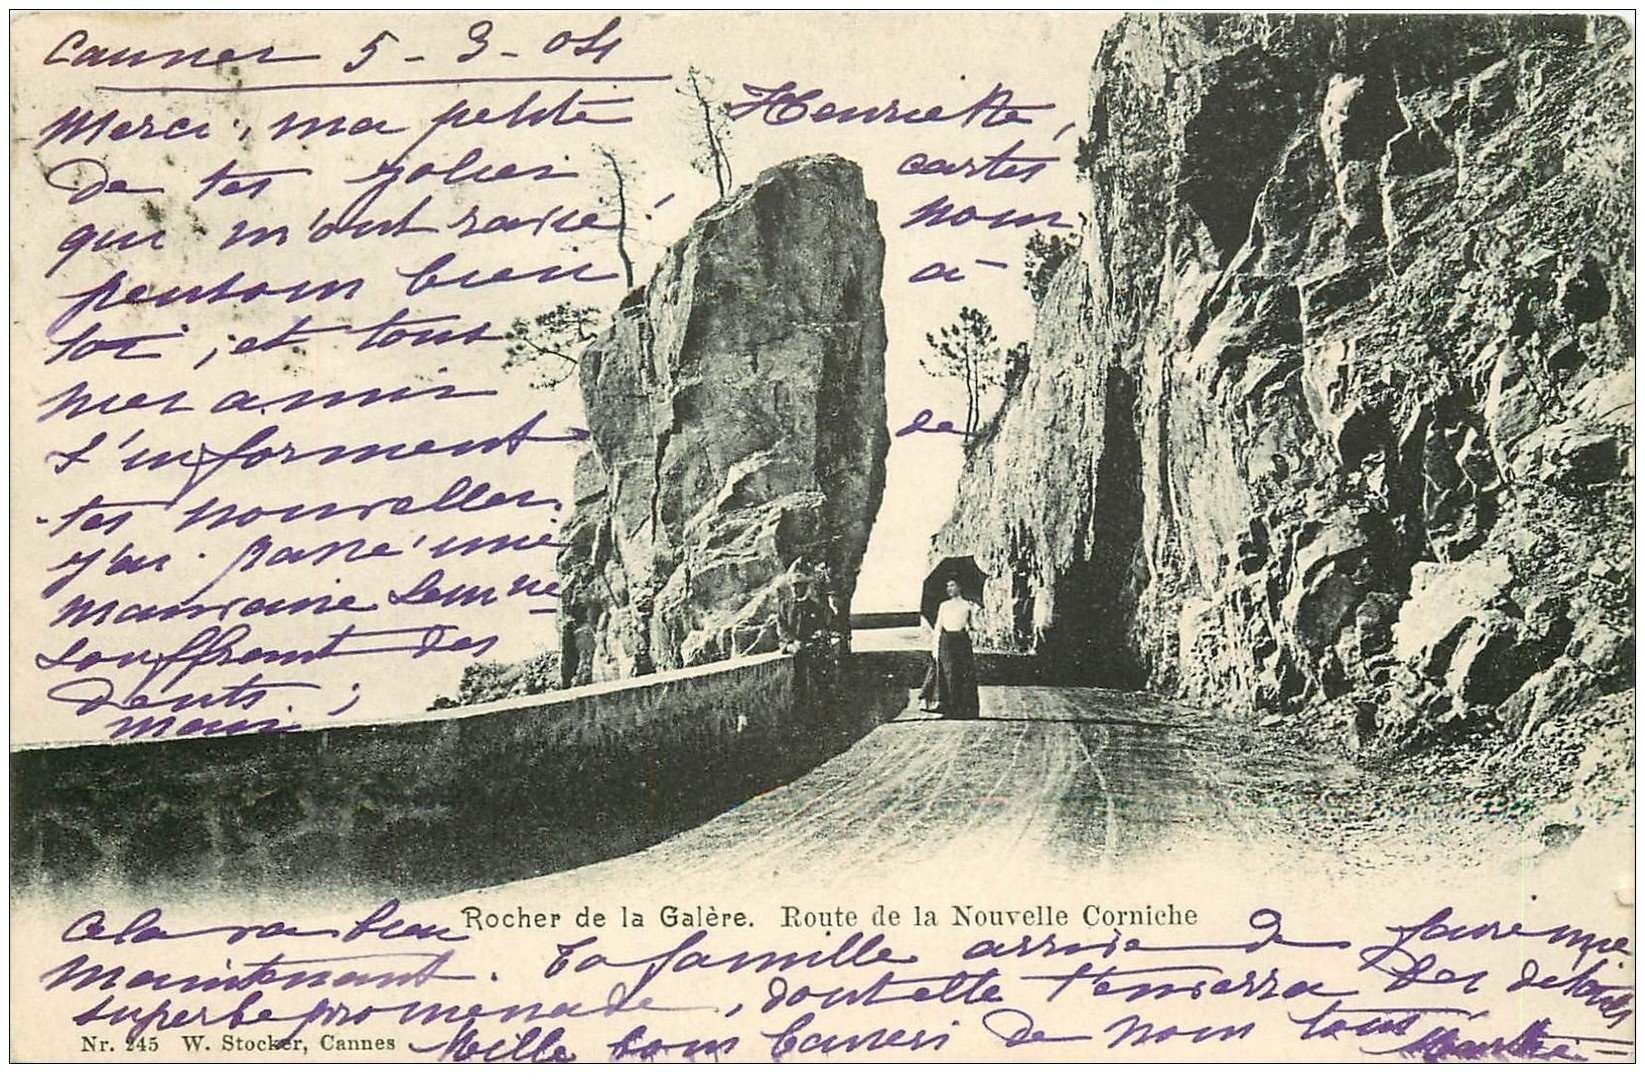 Cannes 5-3-04
Merci, ma petite Henriette,
de tes jolies cartes
qui m'ont ravie! nous
pensons bien à
toi, et tous
mes amis
s'informent de
tes nouvelles.
j'ai passé une
mauvaise semne
souffrant des
dents;
mais
cela va bien
maintenant. Ta famille arrive de faire une
superbe promenade, dont elle t'enverra des détails
Mille bons baisers de nous tous
Rocher de la Galère. Route de la Nouvelle Corniche
Nr. 245 W. Stocker, Cannes